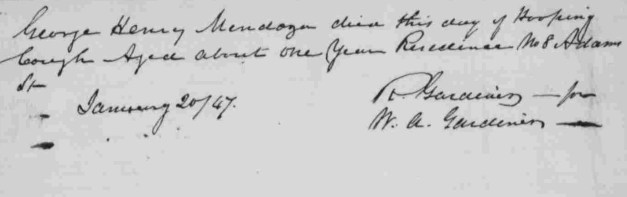 George Henry Mendoza died this day of Hooping
Cough Aged about one Year Residence No 8 Adams
St
January 20/47.
R. Gardiner — for
W. A. Gardiner —